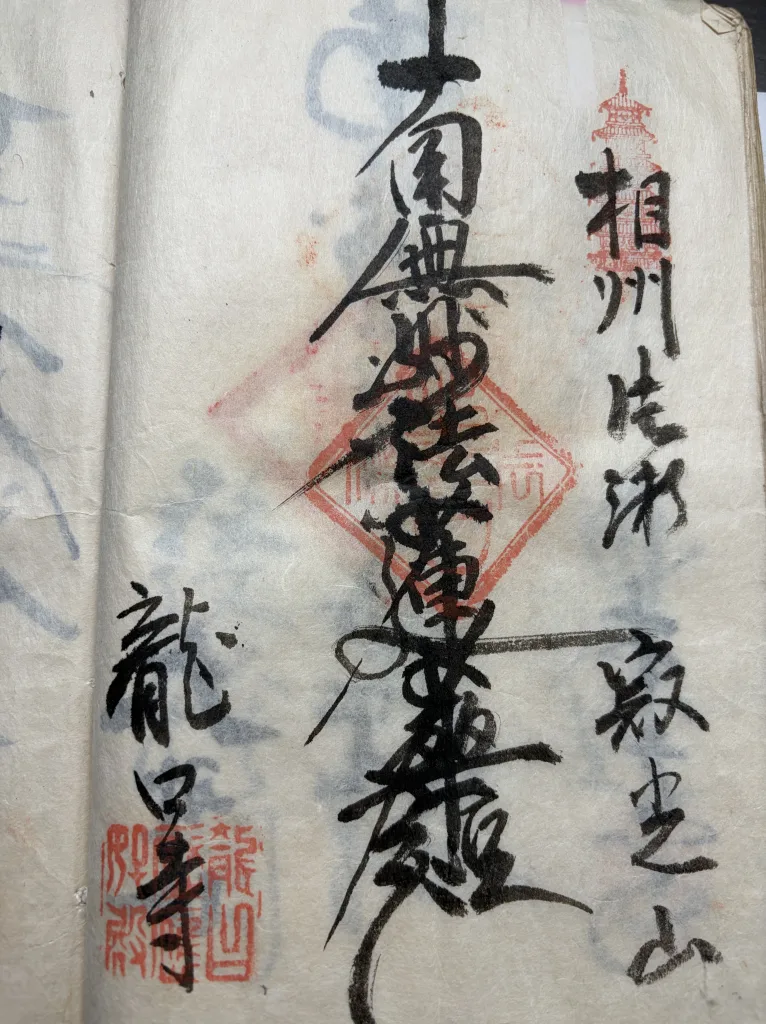 相州片瀬 寂光山
南無妙法蓮華經
龍口寺